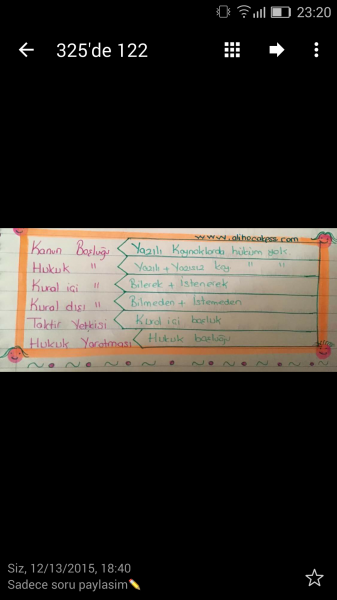 23:20
325'de 122
www.alihocakpss.com
Kanun Boşluğu < Yazılı Kaynaklarda hüküm yok
Hukuk " < Yazılı + Yazısız kay " "
Kural içi " < Bilerek + İstenerek
Kural dışı " < Bilmeden + İstemeden
Taktir Yetkisi < Kural içi boşluk
Hukuk Yaratması < Hukuk boşluğu
Siz, 12/13/2015, 18:40
Sadece soru paylasim✏️